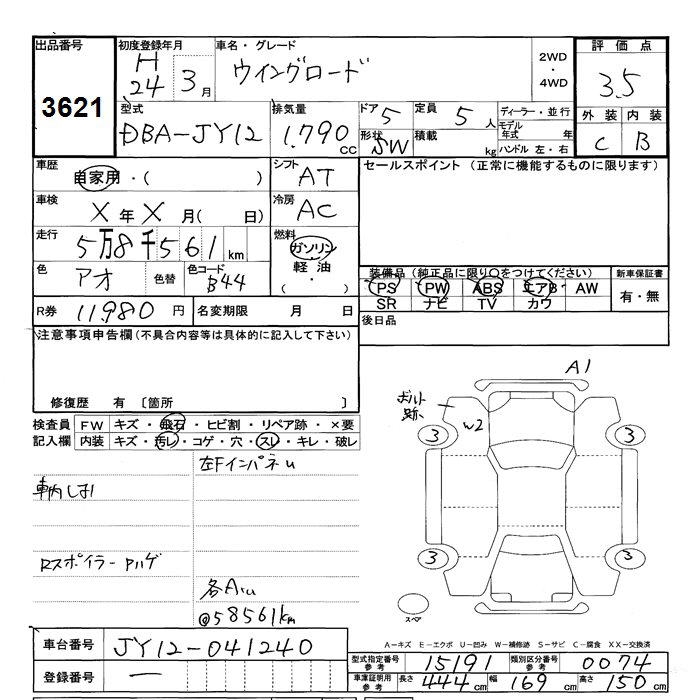 出品番号 初度登録年月 車名・グレード 評価点
3621 H24 3月 ウイングロード 2WD・4WD 3.5
型式 排気量 ドア 5 定員 5人 ディーラー・並行 外装 内装
DBA-JY12 1.790cc 形状 SW 積載 kg モデル年式 年 C B
ハンドル 左・右
車歴 自家用・( ) シフト AT セールスポイント (正常に機能するものに限ります)
車検 X年X月( 日) 冷房 AC
走行 5万8千561km 燃料 ガソリン
色 アオ 色替 色コード B44 軽油 ( ・ ) 装備品 (純正品に限り○をつけてください) 新車保証書
PS PW ABS エアB AW 有・無
SR ナビ TV カワ
R券 11980円 名変期限 月 日 後日品
注意事項申告欄(不具合内容等は具体的に記入して下さい)
修復歴 有 〔箇所 〕
検査員 FW キズ・飛石・ヒビ割・リペア跡・×要
記入欄 内装 キズ・汚レ・コゲ・穴・スレ・キレ・破レ
左Fインパネu
Rスポイラー Pハゲ
@58561km
A1
ボルト跡
W2
3 3
3 3
スペア
A−キズ E−エクボ U−凹み W−補修跡 S−サビ C−腐食 XX−交換済
車台番号 JY12-041240
登録番号 —
型式指定番号 参考 15191 類別区分番号 参考 0074
車庫証明用 参考 長さ 444cm 幅 169cm 高さ 150cm